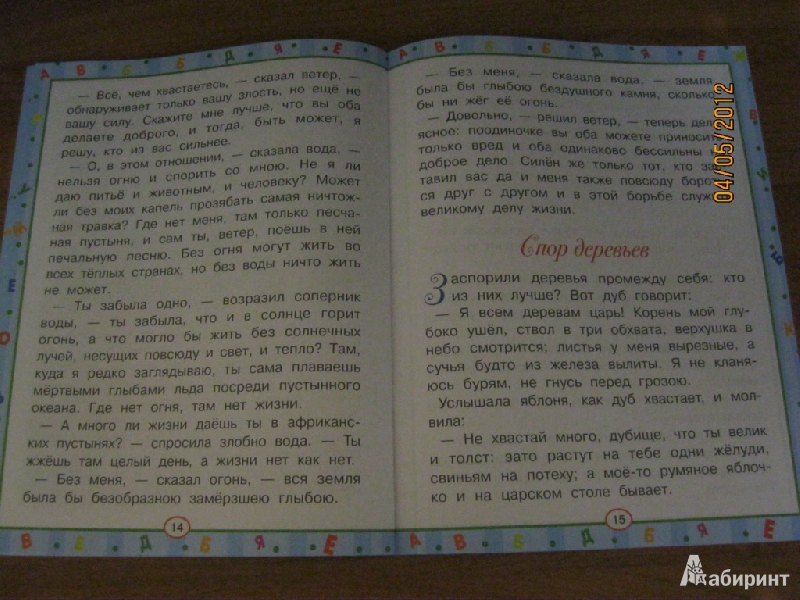 А В Б Б Д Я Е
— Всё, чем хвастаетесь, — сказал ветер, —
обнаруживает только вашу злость, но ещё не
вашу силу. Скажите мне лучше, что вы оба
делаете доброго, и тогда, быть может, я
решу, кто из вас сильнее.
— О, в этом отношении, — сказала вода, —
нельзя огню и спорить со мною. Не я ли
даю питьё и животным, и человеку? Может
ли без моих капель прозябать самая ничтож-
ная травка? Где нет меня, там только песча-
ная пустыня, и сам ты, ветер, поёшь в ней
печальную песню. Без огня могут жить во
всех тёплых странах, но без воды ничто жить
не может.
— Ты забыла одно, — возразил соперник
воды, — ты забыла, что и в солнце горит
огонь, а что могло бы жить без солнечных
лучей, несущих повсюду и свет, и тепло? Там,
куда я редко заглядываю, ты сама плаваешь
мёртвыми глыбами льда посреди пустынного
океана. Где нет огня, там нет жизни.
— А много ли жизни даёшь ты в африканс-
ких пустынях? — спросила злобно вода. — Ты
жжёшь там целый день, а жизни нет как нет.
— Без меня, — сказал огонь, — вся земля
была бы безобразною замёрзшею глыбою.
14
В Б Д Б Я Е
А В Б Б Д Я Е
— Без меня, — сказала вода, — земля
была бы глыбою бездушного камня, сколько
бы ни жёг её огонь.
— Довольно, — решил ветер, — теперь дело
ясное: поодиночке вы оба можете приносить
только вред и оба одинаково бессильны на
доброе дело. Силён же только тот, кто зас-
тавил вас да и меня также повсюду борот-
ся друг с другом и в этой борьбе служи
великому делу жизни.
Спор деревьев
Заспорили деревья промежду себя: кто
из них лучше? Вот дуб говорит:
— Я всем деревам царь! Корень мой глу-
боко ушёл, ствол в три обхвата, верхушка в
небо смотрится: листья у меня вырезные, а
сучья будто из железа вылиты. Я не кланя-
юсь бурям, не гнусь перед грозою.
Услышала яблоня, как дуб хвастает, и мол-
вила:
— Не хвастай много, дубище, что ты велик
и толст: зато растут на тебе одни жёлуди,
свиньям на потеху; а моё-то румяное яблоч-
ко и на царском столе бывает.
15
А В Б Д Б Я Е
04/05/2012
Лабиринт